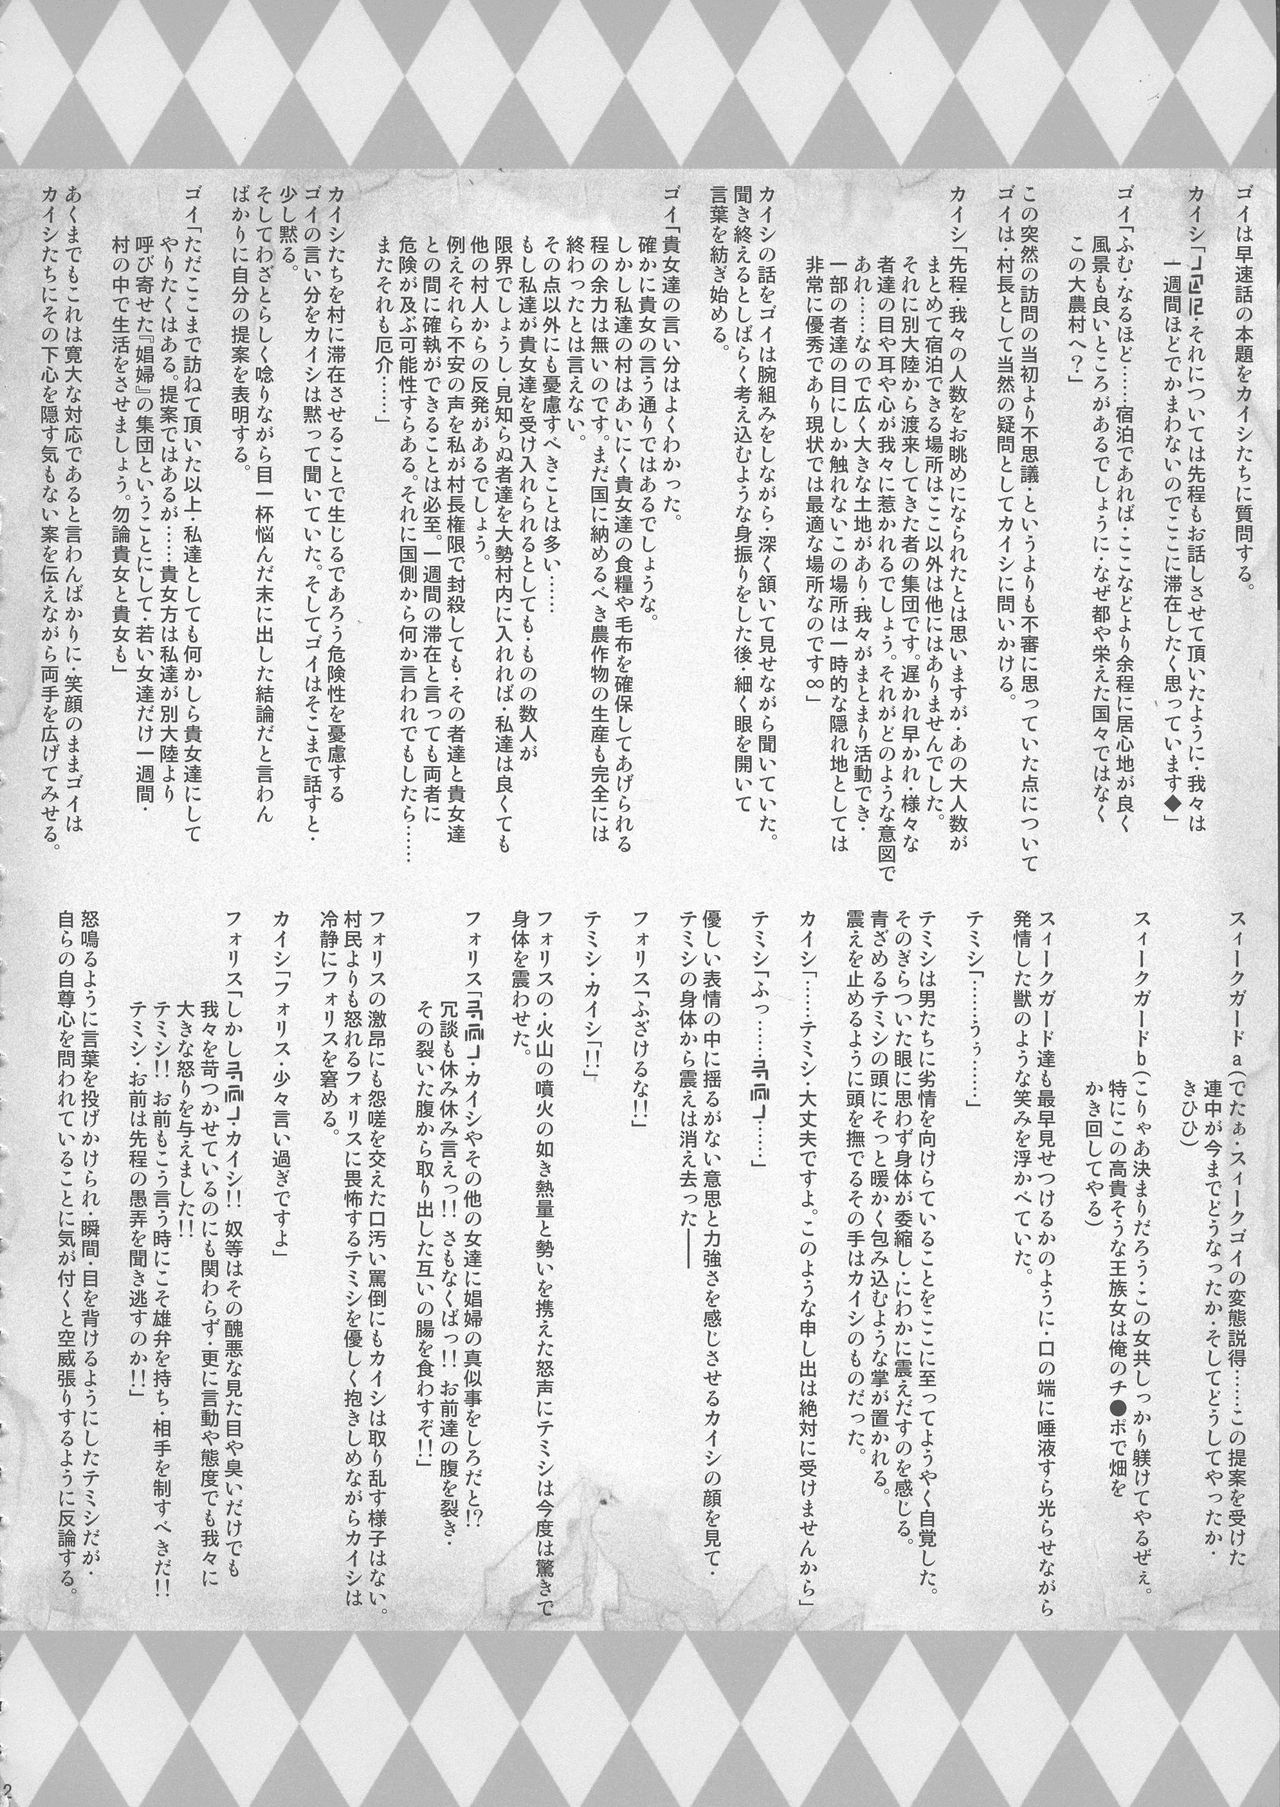 ゴイは早速話の本題をカイシたちに質問する。
カイシ「・それについては先程もお話しさせて頂いたように・我々は
一週間ほどでかまわないのでここに滞在したく思っています◆」
ゴイ「ふむ・なるほど……宿泊であれば・ここなどより余程に居心地が良く
風景も良いところがあるでしょうに・なぜ都や栄えた国々ではなく
この大農村へ?」
この突然の訪問の当初より不思議・というよりも不審に思っていた点について
ゴイは・村長として当然の疑問としてカイシに問いかける。
カイシ「先程・我々の人数をお眺めになられたとは思いますが・あの大人数が
まとめて宿泊できる場所はここ以外は他にはありませんでした。
それに別大陸から渡来してきた者の集団です。遅かれ早かれ・様々な
者達の目や耳や心が我々に惹かれるでしょう。それがどのような意図で
あれ…なので広く大きな土地があり・我々がまとまり活動でき・
一部の者達の目にしか触れないこの場所は一時的な隠れ地としては
非常に優秀であり現状では最適な場所なのです∞」
カイシの話をゴイは腕組みをしながら・深く頷いて見せながら聞いていた。
聞き終えるとしばらく考え込むような身振りをした後・細く眼を開いて
言葉を紡ぎ始める。
ゴイ「貴女達の言い分はよくわかった。
確かに貴女の言う通りではあるでしょうな。
しかし私達の村はあいにく貴女達の食糧や毛布を確保してあげられる
程の余力は無いのです。まだ国に納めるべき農作物の生産も完全には
終わったとは言えない。
その点以外にも憂慮すべきことは多い……
もし私達が貴女達を受け入れられるとしても・ものの数人が
限界でしょうし・見知らぬ者達を大勢村内に入れれば・私達は良くても
他の村人からの反発があるでしょう。
例えそれら不安の声を私が村長権限で封殺しても・その者達と貴女達
との間に確執ができることは必至。一週間の滞在と言っても両者に
危険が及ぶ可能性すらある。それに国側から何か言われでもしたら……
またそれも厄介……」
カイシたちを村に滞在させることで生じるであろう危険性を憂慮する
ゴイの言い分をカイシは黙って聞いていた。そしてゴイはそこまで話すと・
少し黙る。
そしてわざとらしく唸りながら目一杯悩んだ末に出した結論だと言わん
ばかりに自分の提案を表明する。
ゴイ「ただここまで訪ねて頂いた以上・私達としても何かしら貴女達にして
やりたくはある。提案ではあるが……貴女方は私達が別大陸より
呼び寄せた『娼婦』の集団ということにして・若い女達だけ一週間・
村の中で生活をさせましょう。勿論貴女と貴女も」
あくまでもこれは寛大な対応であると言わんばかりに・笑顔のままゴイは
カイシたちにその下心を隠す気もない案を伝えながら両手を広げてみせる。
スィークガードa(でたぁ・スィークゴイの変態説得……この提案を受けた
連中が今までどうなったか・そしてどうしてやったか・
きひひ)
スィークガードb(こりゃあ決まりだろう・この女共しっかり躾けてやるぜぇ。
特にこの高貴そうな王族女は俺のチ●ポで畑を
かき回してやる)
スィークガード達も最早見せつけるかのように・口の端に唾液すら光らせながら
発情した獣のような笑みを浮かべていた。
テミシ「……うぅ……」
テミシは男たちに劣情を向けらていることをここに至ってようやく自覚した。
そのぎらついた眼に思わず身体が委縮し・にわかに震えだすのを感じる。
青ざめるテミシの頭にそっと暖かく包み込むような掌が置かれる。
震えを止めるように頭を撫でるその手はカイシのものだった。
カイシ「……テミシ・大丈夫ですよ。このような申し出は絶対に受けませんから」
テミシ「ふっ……・……」
優しい表情の中に揺るがない意思と力強さを感じさせるカイシの顔を見て・
テミシの身体から震えは消え去った――
フォリス「ふざけるな!!
テミシ・カイシ「!!」
フォリスの・火山の噴火の如き熱量と勢いを携えた怒声にテミシは今度は驚きで
身体を震わせた。
フォリス「・カイシやその他の女達に娼婦の真似事をしろだと!?
冗談も休み休み言えっ!! さもなくばっ!! お前達の腹を裂き・
その裂いた腹から取り出した互いの腸を食わすぞ!!」
フォリスの激昂にも怨嗟を交えた口汚い罵倒にもカイシは取り乱す様子はない。
村民よりも怒れるフォリスに畏怖するテミシを優しく抱きしめながらカイシは
冷静にフォリスを窘める。
カイシ「フォリス・少々言い過ぎですよ」
フォリス「しかし・カイシ!! 奴等はその醜悪な見た目や臭いだけでも
我々を苛つかせているのにも関わらず・更に言動や態度でも我々に
大きな怒りを与えました!!
テミシ!! お前もこう言う時にこそ雄弁を持ち・相手を制すべきだ!!
テミシ・お前は先程の愚弄を聞き逃すのか!!」
怒鳴るように言葉を投げかけられ・瞬間・目を背けるようにしたテミシだが・
自らの自尊心を問われていることに気が付くと空威張りするように反論する。
2